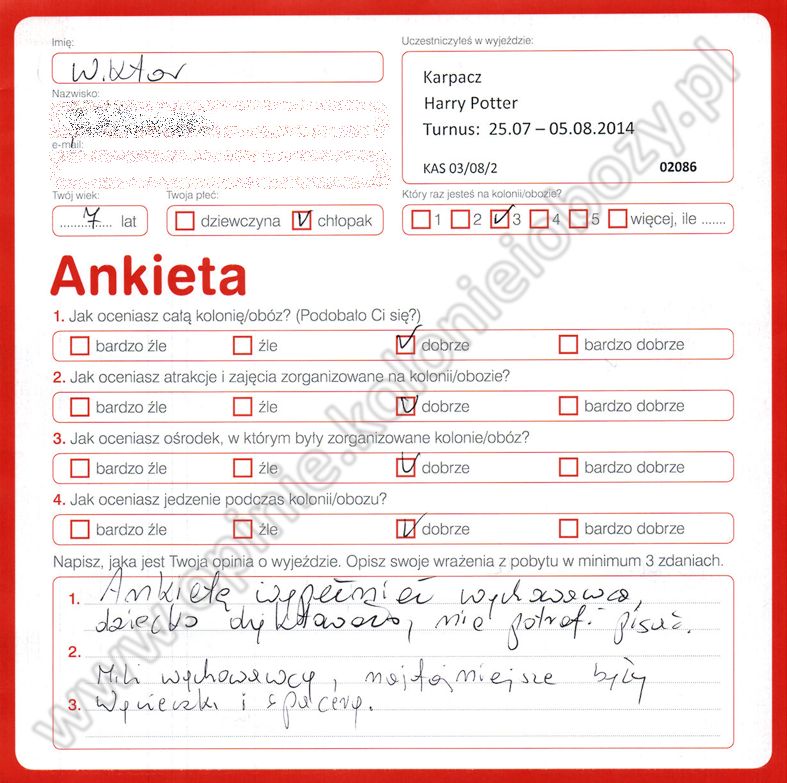 Imię:
Wiktor
Nazwisko:
e-mail:
Twój wiek:
7 lat
Twoja płeć:
dziewczyna chłopak
Uczestniczyłeś w wyjeździe:
Karpacz
Harry Potter
Turnus: 25.07 – 05.08.2014
KAS 03/08/2 02086
Który raz jesteś na kolonii/obozie?
1 2 3 4 5 więcej, ile .......
Ankieta
1. Jak oceniasz całą kolonię/obóz? (Podobało Ci się?)
bardzo źle źle dobrze bardzo dobrze
2. Jak oceniasz atrakcje i zajęcia zorganizowane na kolonii/obozie?
bardzo źle źle dobrze bardzo dobrze
3. Jak oceniasz ośrodek, w którym były zorganizowane kolonie/obóz?
bardzo źle źle dobrze bardzo dobrze
4. Jak oceniasz jedzenie podczas kolonii/obozu?
bardzo źle źle dobrze bardzo dobrze
Napisz, jaka jest Twoja opinia o wyjeździe. Opisz swoje wrażenia z pobytu w minimum 3 zdaniach.
1. Ankietę wypełniał wychowawca,
dziecko dyktowało, nie potrafi pisać.
2.
Mili wychowawcy, najfajniejsze były
3. Wycieczki i spacery.
www.opinie.kolonieiobozy.pl